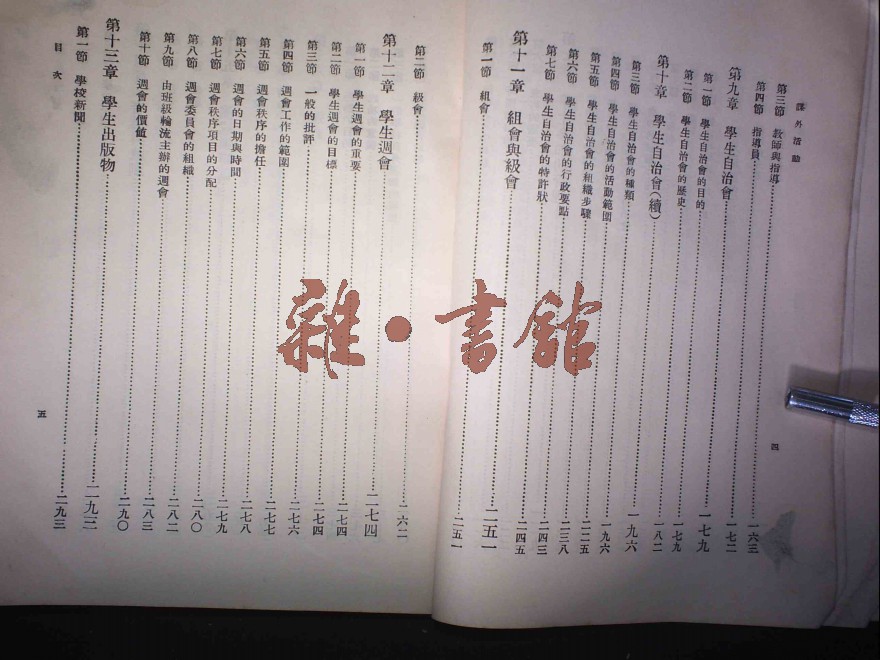 課外活動
第三節 教師與指導 一六三
第四節 指導員 一七二
第九章 學生自治會 一七九
第一節 學生自治會的目的 一七九
第二節 學生自治會的歷史 一八二
第十章 學生自治會(續) 一九六
第三節 學生自治會的種類 一九六
第四節 學生自治會的活動範圍 二二五
第五節 學生自治會的組織步驟 二三八
第六節 學生自治會的行政要點 二四三
第七節 學生自治會的特許狀 二四五
第十一章 組會與級會 二五一
第一節 組會 二五一
四
第二節 級會 二六二
第十二章 學生週會 二七四
第一節 學生週會的重要 二七四
第二節 學生週會的目標 二七四
第三節 一般的批評 二七六
第四節 週會工作的範圍 二七七
第五節 週會秩序的擔任 二七八
第六節 週會的日期與時間 二七九
第七節 週會秩序項目的分配 二八〇
第八節 週會委員會的組織 二八二
第九節 由班級輪流主辦的週會 二八三
第十節 週會的價值 二九〇
第十三章 學生出版物 二九三
第一節 學校新聞 二九三
目次
五
雜·書館